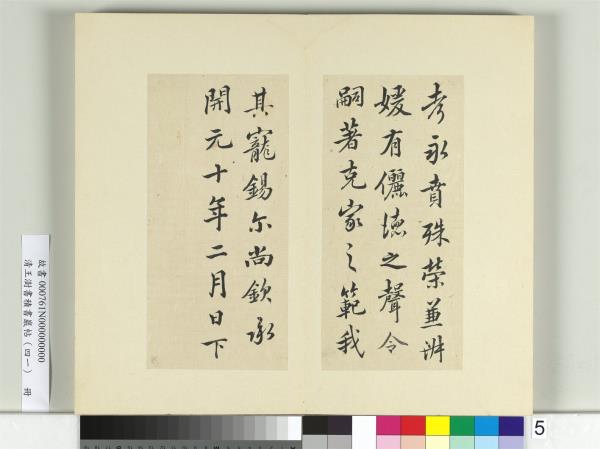 考永賁殊榮並游
媛有儷德之聲令
嗣著克家之範我
其寵錫尓尚欽承
開元十年二月日下
故書000761N000000000
清王澍書積書巖帖（四一） 冊
5